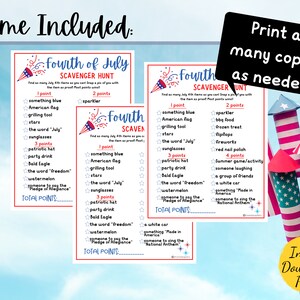 ame Included:
Print a
many cop
as neede
Fourth of July
SCAVENGER HUNT
Find as many July 4th items as you can! Snap a pic of you with
the item as proof! Most points wins!
1 point
something blue
American flag
grilling tool
stars
the word "July"
sunglasses
3 points
patriotic hat
party drink
Bald Eagle
the word "freedom"
watermelon
someone to say the
"Pledge of Allegiance"
TOTAL POINTS
2 points
sparkler
Fourth
SCAV
Find as many July 4th items as
the item as proof
1 point
something blue
American flag
grilling tool
stars
the word "July"
sunglasses
3 points
patriotic hat
party drink
Bald Eagle
the word "freedom"
watermelon
someone to say the
"Pledge of Allegiance"
TOTAL POINTS
Fourth of July
SCAVENGER HUNT
Find as many July 4th items as you can! Snap a pic of you with
the item as proof! Most points wins!
2 points
sparkler
bbq food
frozen treat
flipflops
fireworks
red nail polish
4 points
Summer game/activity
someone laughing
a group of friends
a white car
something "Made in
America"
someone to sing the
"National Anthem"
a white car
something "Made in
America"
someone to sing the
"National Anthem"
In
Dow